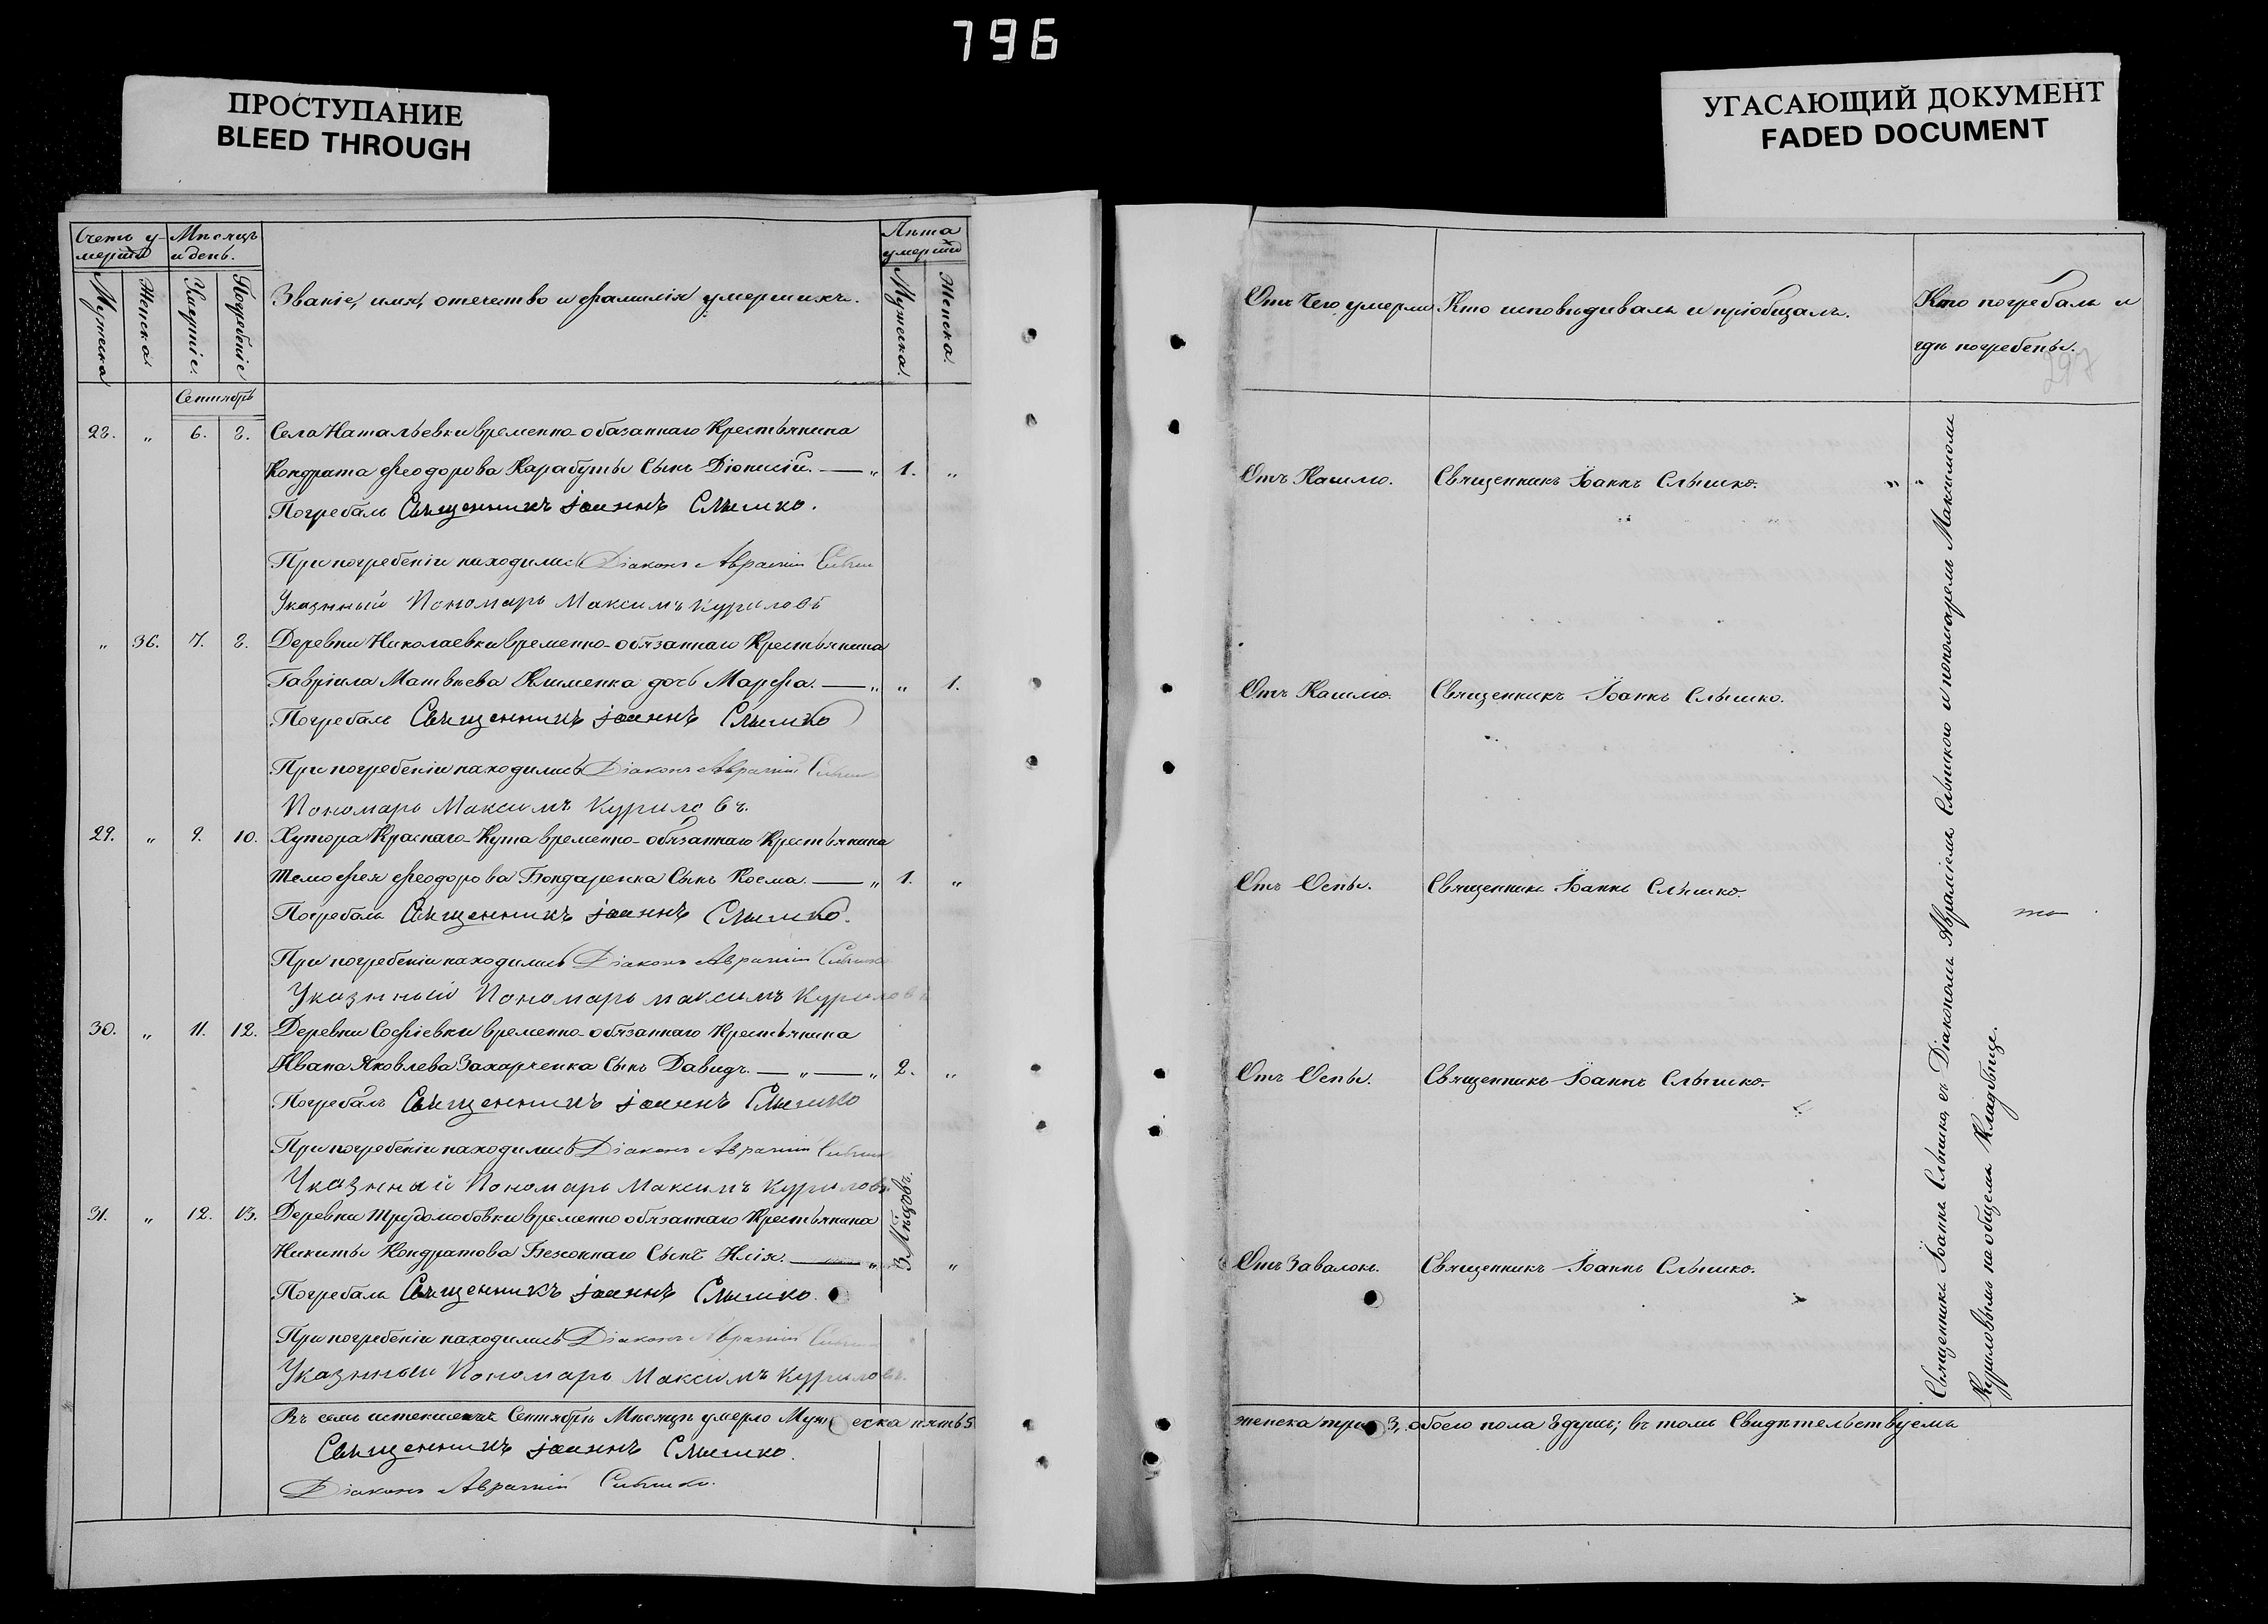 796
ПРОСТУПАНИЕ
BLEED THROUGH
УГАСАЮЩИЙ ДОКУМЕНТ
FADED DOCUMENT
Счетъ у-
мерших
Мѣсяцъ
и день.
Лѣта
умерших
Мужеска
Женска
Умертіе.
Погребеніе
Званіе, имя, отечество и фамилія умершихъ.
Мужеска.
Женска.
Сентябрь
28. „ 6. 8. Села Натальевки временно-обязаннаго Крестьянина
Кондрата Феодорова Карабуты Сынъ Діонисій. — „ 1. „
Погребалъ Священникъ Іоаннъ Слышко.
При погребеніи находились Діаконъ Авраміи
Указнный Пономарь Максимъ Куриловъ
„ 36. 7. 8. Деревни Николаевки временно-обязаннаго Крестьянина
Гавріила Матвѣева Клименка дочь Марфа. — „ „ 1.
Погребалъ Священникъ Іоаннъ Слышко
При погребеніи находились Діаконъ Авраміи
Пономарь Максимъ Куриловъ.
29. „ 9. 10. Хутора Краснаго-Кута временно-обязаннаго Крестьянина
Тимофея Феодорова Бондаренка Сынъ Косма. — „ 1. „
Погребалъ Священникъ Іоаннъ Слышко.
При погребеніи находились Діаконъ Авраміи
Указнный Пономарь Максимъ Куриловъ
30. „ 11. 12. Деревни Софіевки временно-обязаннаго Крестьянина
Ивана Яковлева Захарченка Сынъ Давидъ. — „ — „ 2. „
Погребалъ Священникъ Іоаннъ Слышко
При погребеніи находились Діаконъ Авраміи
Указнный Пономарь Максимъ Куриловъ
31. „ 12. 13. Деревни Трудолюбовки временно обязаннаго Крестьянина
Никиты Кондратова Сынъ Илія. — „ 3 Мѣсцовъ. „
Погребалъ Священникъ Іоаннъ Слышко.
При погребеніи находились Діаконъ Авраміи
Указнный Пономарь Максимъ Куриловъ.
Въ семъ истекшемъ Сентябрѣ Мѣсяцѣ умерло Мужеска пять 5
Священникъ Іоаннъ Слышко.
Діаконъ Авраміи
Отъ чего умерли
Кто исповѣдывалъ и пріобщалъ.
Кто погребалъ и
гдѣ погребены.
297
Отъ Кашлю. Священникъ Іоаннъ Слышко. „ „
Отъ Кашлю. Священникъ Іоаннъ Слышко.
Отъ Оспы. Священникъ Іоаннъ Слышко.
Отъ Оспы. Священникъ Іоаннъ Слышко.
Отъ Завалокъ. Священникъ Іоаннъ Слышко.
Священникъ Іоаннъ Слышко, съ Діакономъ Авраміемъ и пономаремъ Максимомъ
Куриловымъ на общемъ Кладбище.
женска три 3, обоего пола 8 душъ; въ томъ Свидѣтельствуемъ